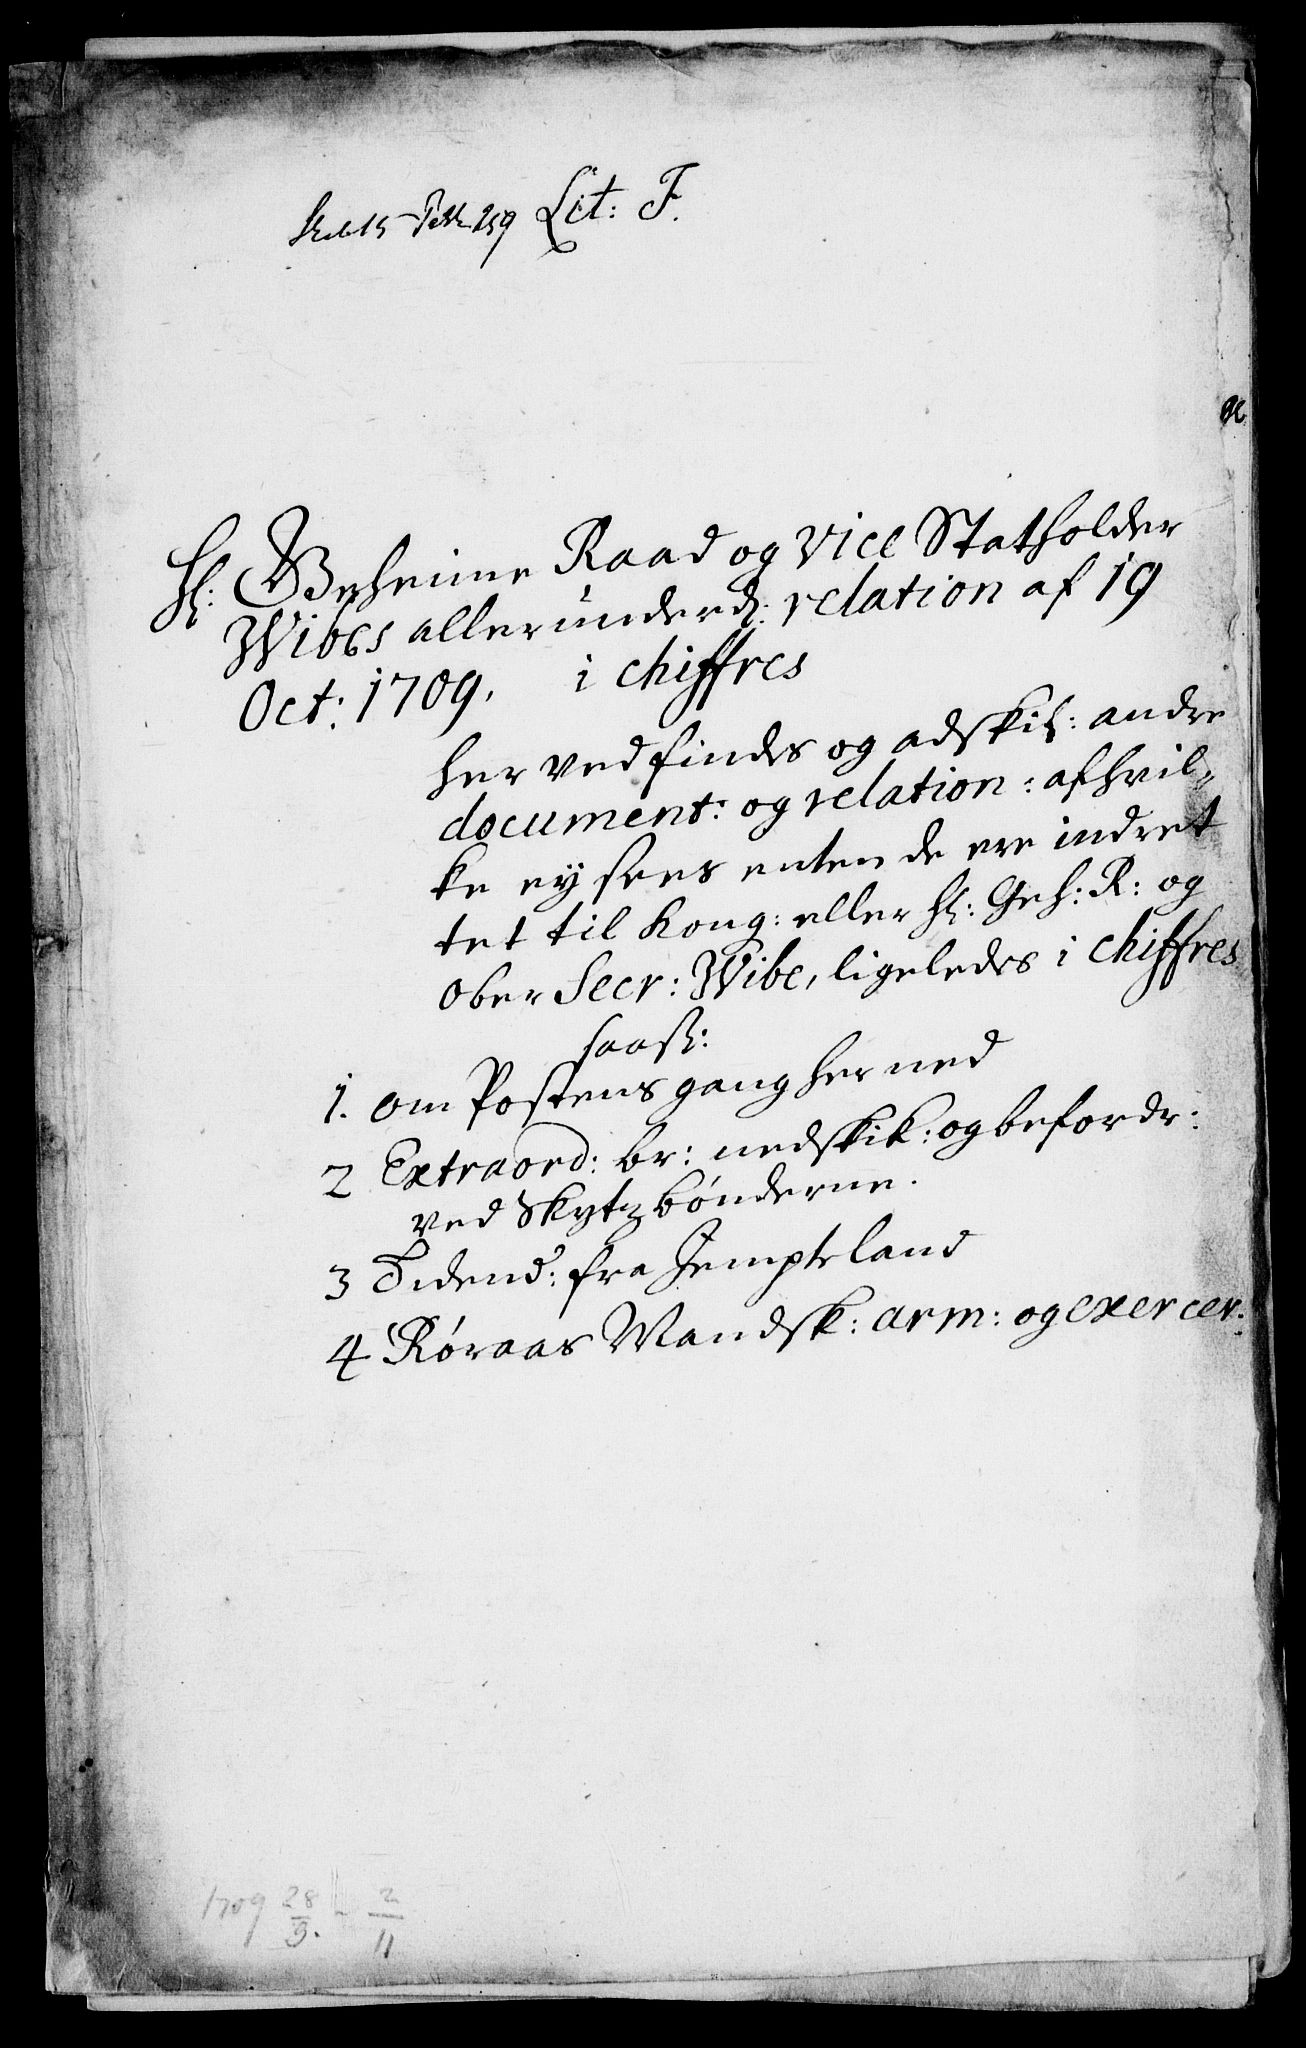 Skab 15 Pakke 259 Lit: F.
Hl: Geheime Raad og Vice Statholder
Wibes allerunderd: relation af 19
Oct: 1709, i chiffres
herved findes og adskil: andre
document: og relation: af hvil-
ke ey sees enten de ere indret
tet til Kong: eller Hl: Geh: R: og
ober Secr: Wibe, ligeledes i chiffres
saasl:
1. om Postens gang her ned
2 Extraord: br: nedskik: og befordr:
ved Skytzbønderne.
3 Tidend: fra Jempteland
4 Røraas Mandsk: arm: og exercer:
1709 28/3. - 2/11